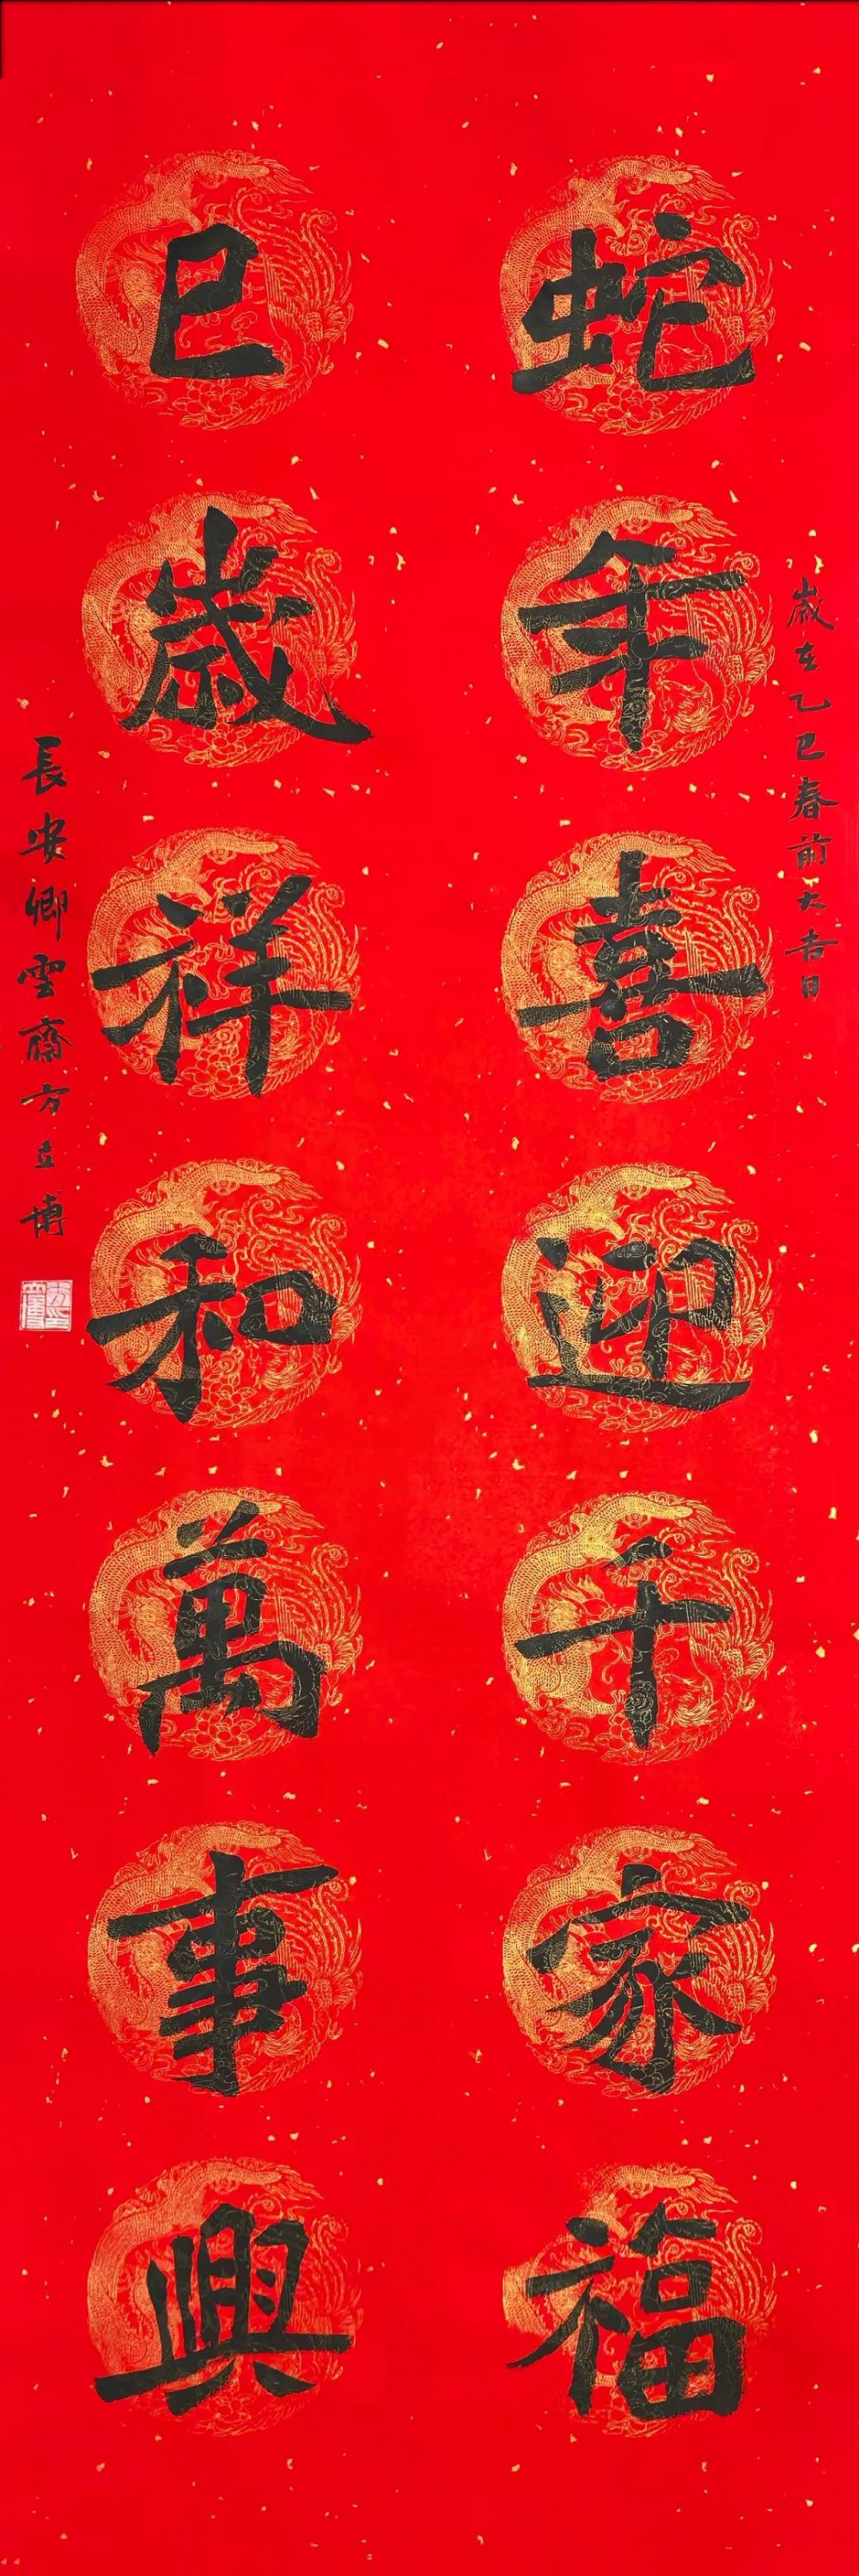 歲在乙巳春前大吉日
蛇年喜迎千家福
巳歲祥和萬事興
長安卿雲齋方立博